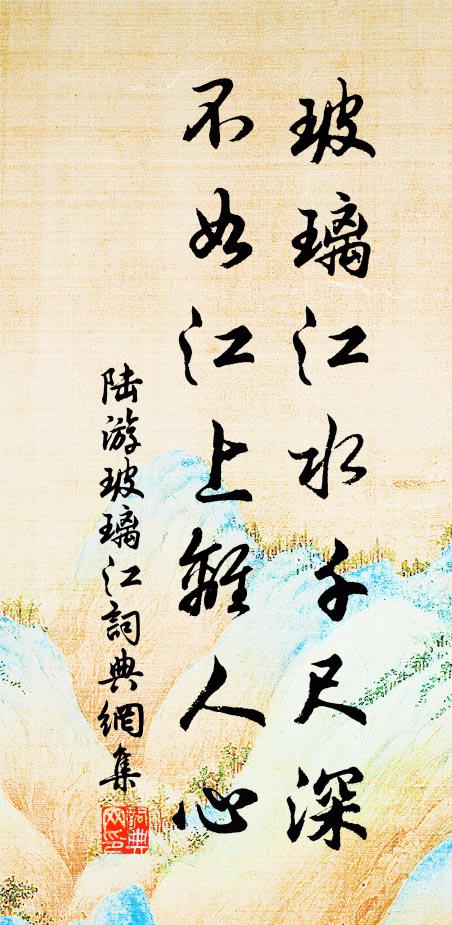 玻璃江水千尺深
不如江上離人心
陆游玻璃江詞典網集
詞典网印